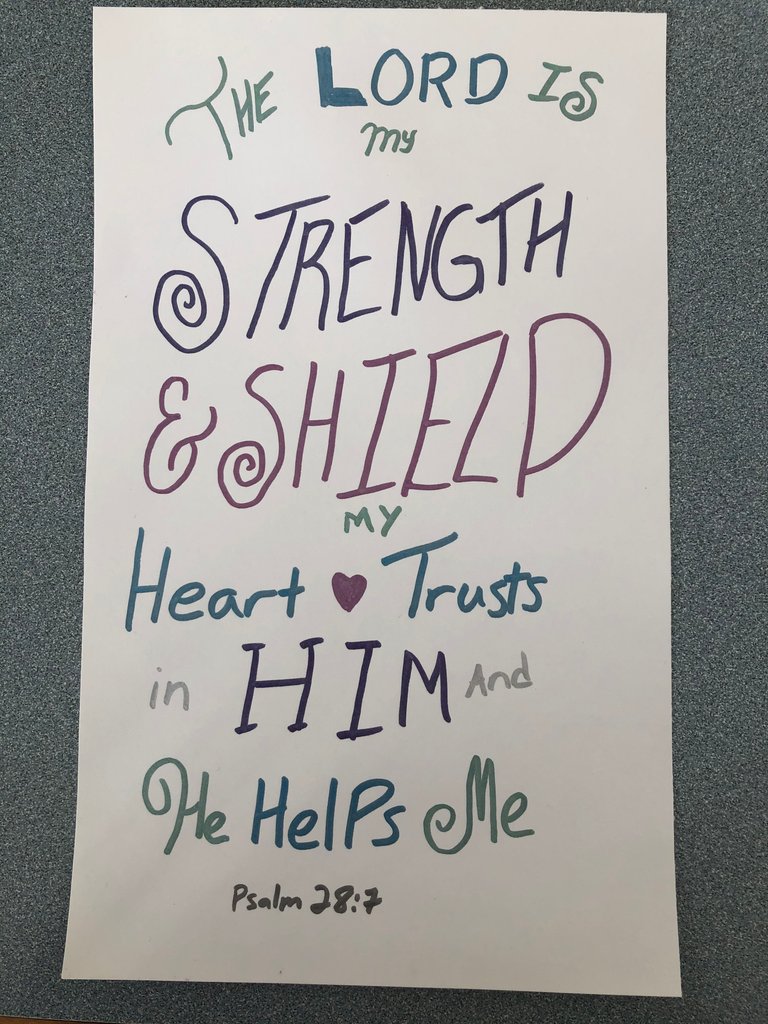 THE LORD IS
my
STRENGTH
& SHIELD
MY
Heart ♥ Trusts
in HIM And
He HelPs Me
Psalm 28:7